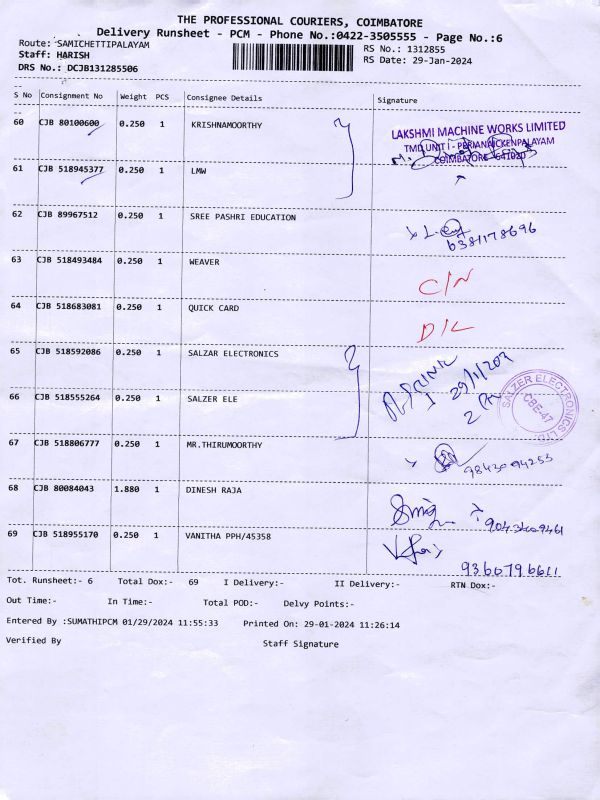 THE PROFESSIONAL COURIERS, COIMBATORE
Delivery Runsheet - PCM - Phone No.:0422-3505555 - Page No.:6
Route: SAMICHETTIPALAYAM
RS No.: 1312855
Staff: HARISH
RS Date: 29-Jan-2024
DRS No.: DCJB131285506
S No Consignment No Weight PCS Consignee Details Signature
60 CJB 80100600 0.250 1 KRISHNAMOORTHY
LAKSHMI MACHINE WORKS LIMITED
TMD UNIT I - PERIANAICKENPALAYAM
COIMBATORE 641020
61 CJB 518945377 0.250 1 LMW
62 CJB 89967512 0.250 1 SREE PASHRI EDUCATION
6381178696
63 CJB 518493484 0.250 1 WEAVER
C/N
64 CJB 518683081 0.250 1 QUICK CARD
D/L
65 CJB 518592086 0.250 1 SALZAR ELECTRONICS
29/1/202
66 CJB 518555264 0.250 1 SALZER ELE
SALZER ELECTRONICS LTD.
CBE-47
67 CJB 518806777 0.250 1 MR.THIRUMOORTHY
9843094255
68 CJB 80084043 1.880 1 DINESH RAJA
69 CJB 518955170 0.250 1 VANITHA PPH/45358
9360796611
Tot. Runsheet:- 6 Total Dox:- 69 I Delivery:- II Delivery:- RTN Dox:-
Out Time:- In Time:- Total POD:- Delvy Points:-
Entered By :SUMATHIPCM 01/29/2024 11:55:33 Printed On: 29-01-2024 11:26:14
Verified By Staff Signature